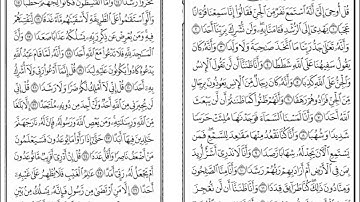 قُلْ أُوحِيَ إِلَيَّ أَنَّهُ ٱسْتَمَعَ نَفَرٌ مِّنَ ٱلْجِنِّ فَقَالُوٓا۟ إِنَّا سَمِعْنَا قُرْءَانًا
عَجَبًا ١ يَهْدِىٓ إِلَى ٱلرُّشْدِ فَـَٔامَنَّا بِهِۦ وَلَن نُّشْرِكَ بِرَبِّنَآ أَحَدًا ٢
وَأَنَّهُۥ تَعَٰلَىٰ جَدُّ رَبِّنَا مَا ٱتَّخَذَ صَٰحِبَةً وَلَا وَلَدًا ٣ وَأَنَّهُۥ كَانَ
يَقُولُ سَفِيهُنَا عَلَى ٱللَّهِ شَطَطًا ٤ وَأَنَّا ظَنَنَّآ أَن لَّن تَقُولَ ٱلْإِنسُ
وَٱلْجِنُّ عَلَى ٱللَّهِ كَذِبًا ٥ وَأَنَّهُۥ كَانَ رِجَالٌ مِّنَ ٱلْإِنسِ يَعُوذُونَ بِرِجَالٍ
مِّنَ ٱلْجِنِّ فَزَادُوهُمْ رَهَقًا ٦ وَأَنَّهُمْ ظَنُّوا۟ كَمَا ظَنَنتُمْ أَن لَّن يَبْعَثَ
ٱللَّهُ أَحَدًا ٧ وَأَنَّا لَمَسْنَا ٱلسَّمَآءَ فَوَجَدْنَٰهَا مُلِئَتْ حَرَسًا
شَدِيدًا وَشُهُبًا ٨ وَأَنَّا كُنَّا نَقْعُدُ مِنْهَا مَقَٰعِدَ لِلسَّمْعِ فَمَن
يَسْتَمِعِ ٱلْـَٔانَ يَجِدْ لَهُۥ شِهَابًا رَّصَدًا ٩ وَأَنَّا لَا نَدْرِىٓ أَشَرٌّ أُرِيدَ
بِمَن فِى ٱلْأَرْضِ أَمْ أَرَادَ بِهِمْ رَبُّهُمْ رَشَدًا ١٠ وَأَنَّا مِنَّا ٱلصَّٰلِحُونَ
وَمِنَّا دُونَ ذَٰلِكَ كُنَّا طَرَآئِقَ قِدَدًا ١١ وَأَنَّا ظَنَنَّآ أَن لَّن نُّعْجِزَ
تَحَرَّوْا۟ رَشَدًا ١٤ وَأَمَّا ٱلْقَٰسِطُونَ فَكَانُوا۟ لِجَهَنَّمَ حَطَبًا ١٥
وَأَلَّوِ ٱسْتَقَٰمُوا۟ عَلَى ٱلطَّرِيقَةِ لَأَسْقَيْنَٰهُم مَّآءً غَدَقًا ١٦ لِّنَفْتِنَهُمْ
فِيهِ وَمَن يُعْرِضْ عَن ذِكْرِ رَبِّهِۦ يَسْلُكْهُ عَذَابًا صَعَدًا ١٧ وَأَنَّ
ٱلْمَسَٰجِدَ لِلَّهِ فَلَا تَدْعُوا۟ مَعَ ٱللَّهِ أَحَدًا ١٨ وَأَنَّهُۥ لَمَّا قَامَ عَبْدُ ٱللَّهِ
يَدْعُوهُ كَادُوا۟ يَكُونُونَ عَلَيْهِ لِبَدًا ١٩ قُلْ إِنَّمَآ أَدْعُوا۟ رَبِّى وَلَآ أُشْرِكُ بِهِۦٓ
أَحَدًا ٢٠ قُلْ إِنِّى لَآ أَمْلِكُ لَكُمْ ضَرًّا وَلَا رَشَدًا ٢١ قُلْ إِنِّى
لَن يُجِيرَنِى مِنَ ٱللَّهِ أَحَدٌ وَلَنْ أَجِدَ مِن دُونِهِۦ مُلْتَحَدًا ٢٢ إِلَّا بَلَٰغًا
مِّنَ ٱللَّهِ وَرِسَٰلَٰتِهِۦ وَمَن يَعْصِ ٱللَّهَ وَرَسُولَهُۥ فَإِنَّ لَهُۥ نَارَ جَهَنَّمَ
خَٰلِدِينَ فِيهَآ أَبَدًا ٢٣ حَتَّىٰٓ إِذَا رَأَوْا۟ مَا يُوعَدُونَ فَسَيَعْلَمُونَ
مَنْ أَضْعَفُ نَاصِرًا وَأَقَلُّ عَدَدًا ٢٤ قُلْ إِنْ أَدْرِىٓ أَقَرِيبٌ مَّا تُوعَدُونَ
أَمْ يَجْعَلُ لَهُۥ رَبِّىٓ أَمَدًا ٢٥ عَٰلِمُ ٱلْغَيْبِ فَلَا يُظْهِرُ عَلَىٰ غَيْبِهِۦٓ
أَحَدًا ٢٦ إِلَّا مَنِ ٱرْتَضَىٰ مِن رَّسُولٍ فَإِنَّهُۥ يَسْلُكُ مِنۢ بَيْنِ